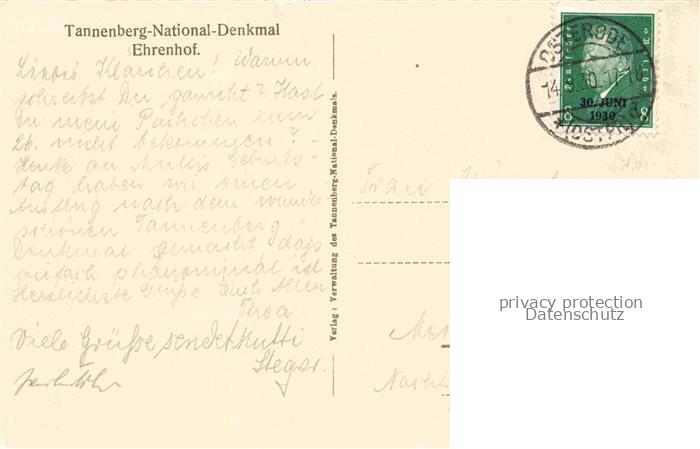 Tannenberg-National-Denkmal
Ehrenhof.
Liebes Klärchen! Warum
schreibst Du garnicht? Hast
Du mein Päckchen zum
26. nicht bekommen? -
Heute an Muttis Geburts-
tag haben wir einen
Ausflug nach dem wunder
schönen Tannenberg-
Denkmal gemacht, dass
einfach phänominal ist
Herzlichste Grüße Euch Allen
Viele Grüße sendet Mutti
Steger.
Verlag: Verwaltung des Tannenberg-National-Denkmals.
OSTERODE
30. JUNI
1930
8 8
Frau
privacy protection
Datenschutz